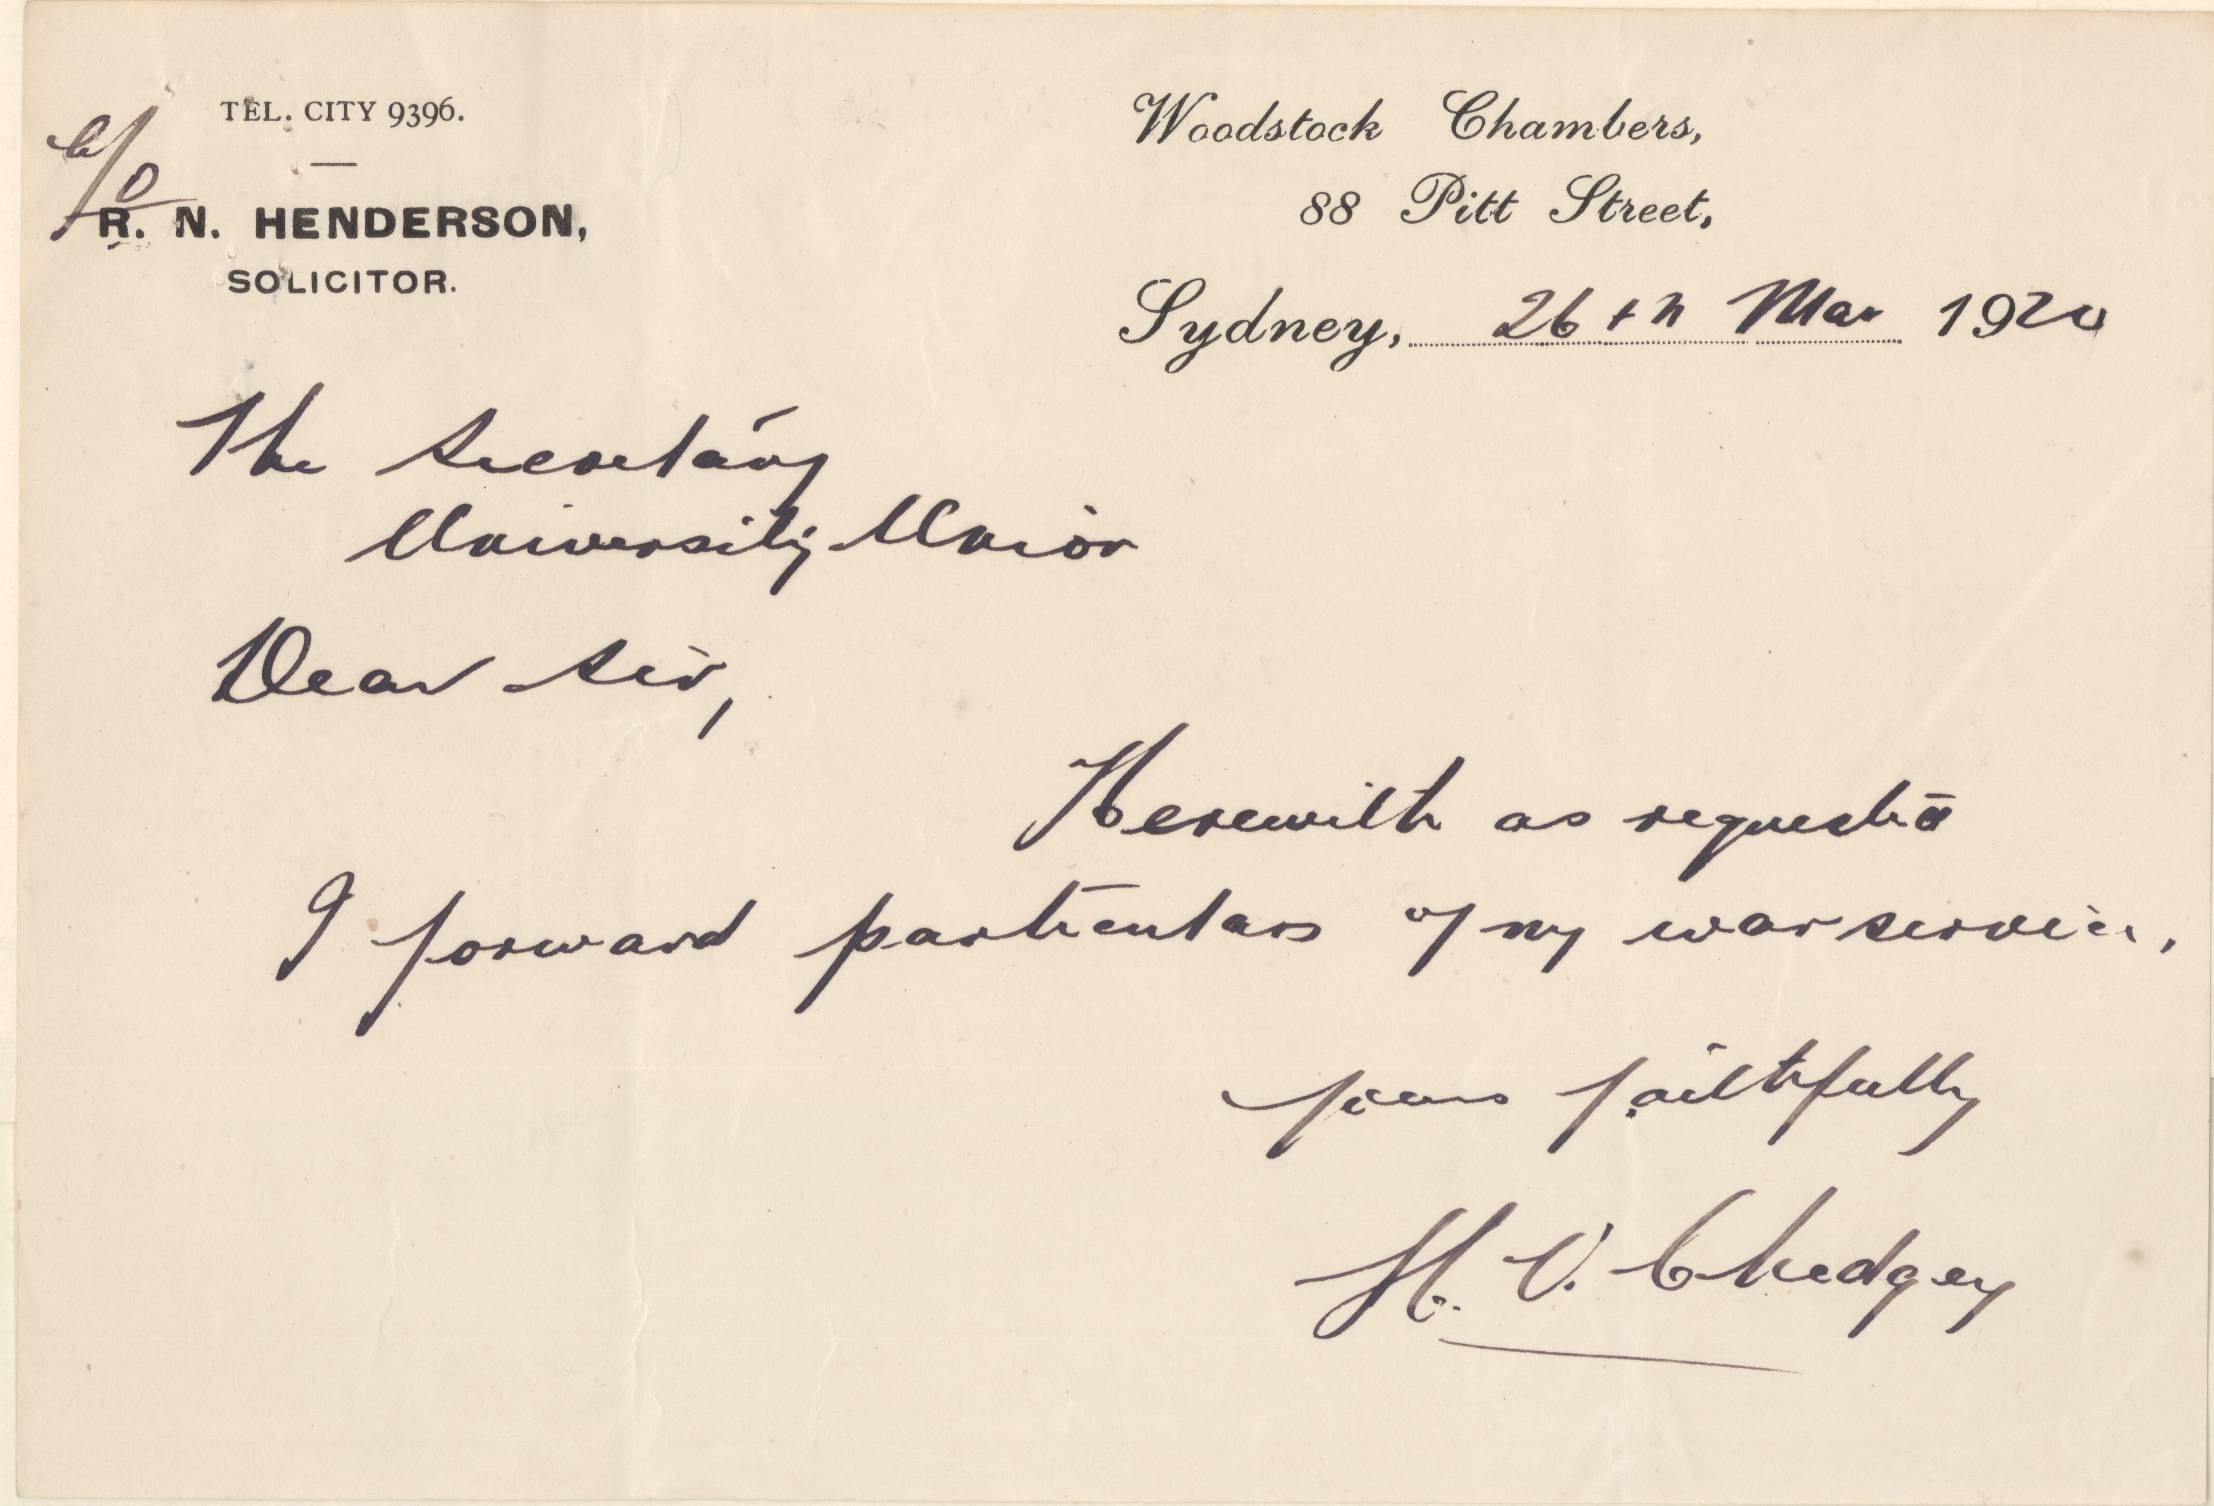 TEL. CITY 9396.
C/o
R. N. HENDERSON,
SOLICITOR.
Woodstock Chambers,
88 Pitt Street,
Sydney, 26th Mar 1920
The Secretary
University Union
Dear Sir,
Herewith as requested
I forward particulars of my war service,
yours faithfully
H. V. Chedgey